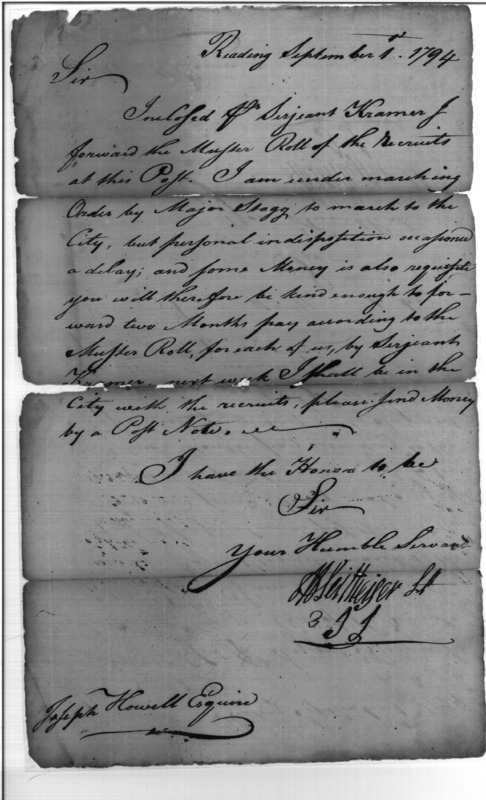 Reading September 1st. 1794
Sir
Inclosed Pr Serjeant Kramer I
forward the Muster Roll of the recruits
at this Post. I am under marching
Order by Major Stagg to march to the
City, but personal indisposition occasioned
a delay; and some Money is also requisite
you will therefore be kind enough to for-
ward two Months pay according to the
Muster Roll, for each of us, by Serjeant
Kramer, next week I shall be in the
City with the recruits, please send Money
by a Post Note.
I have the Honor to be
Sir
Your Humble Servant
Lt
Joseph Howell Esquire